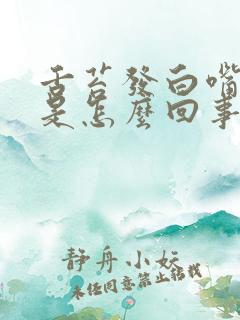 舌苔發白嘴
是怎麼回事
靜舟小妖
未經同意禁止轉載